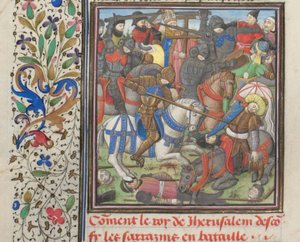 Coment le roy de Jherusalem desco
fit les sarrazins en bataille